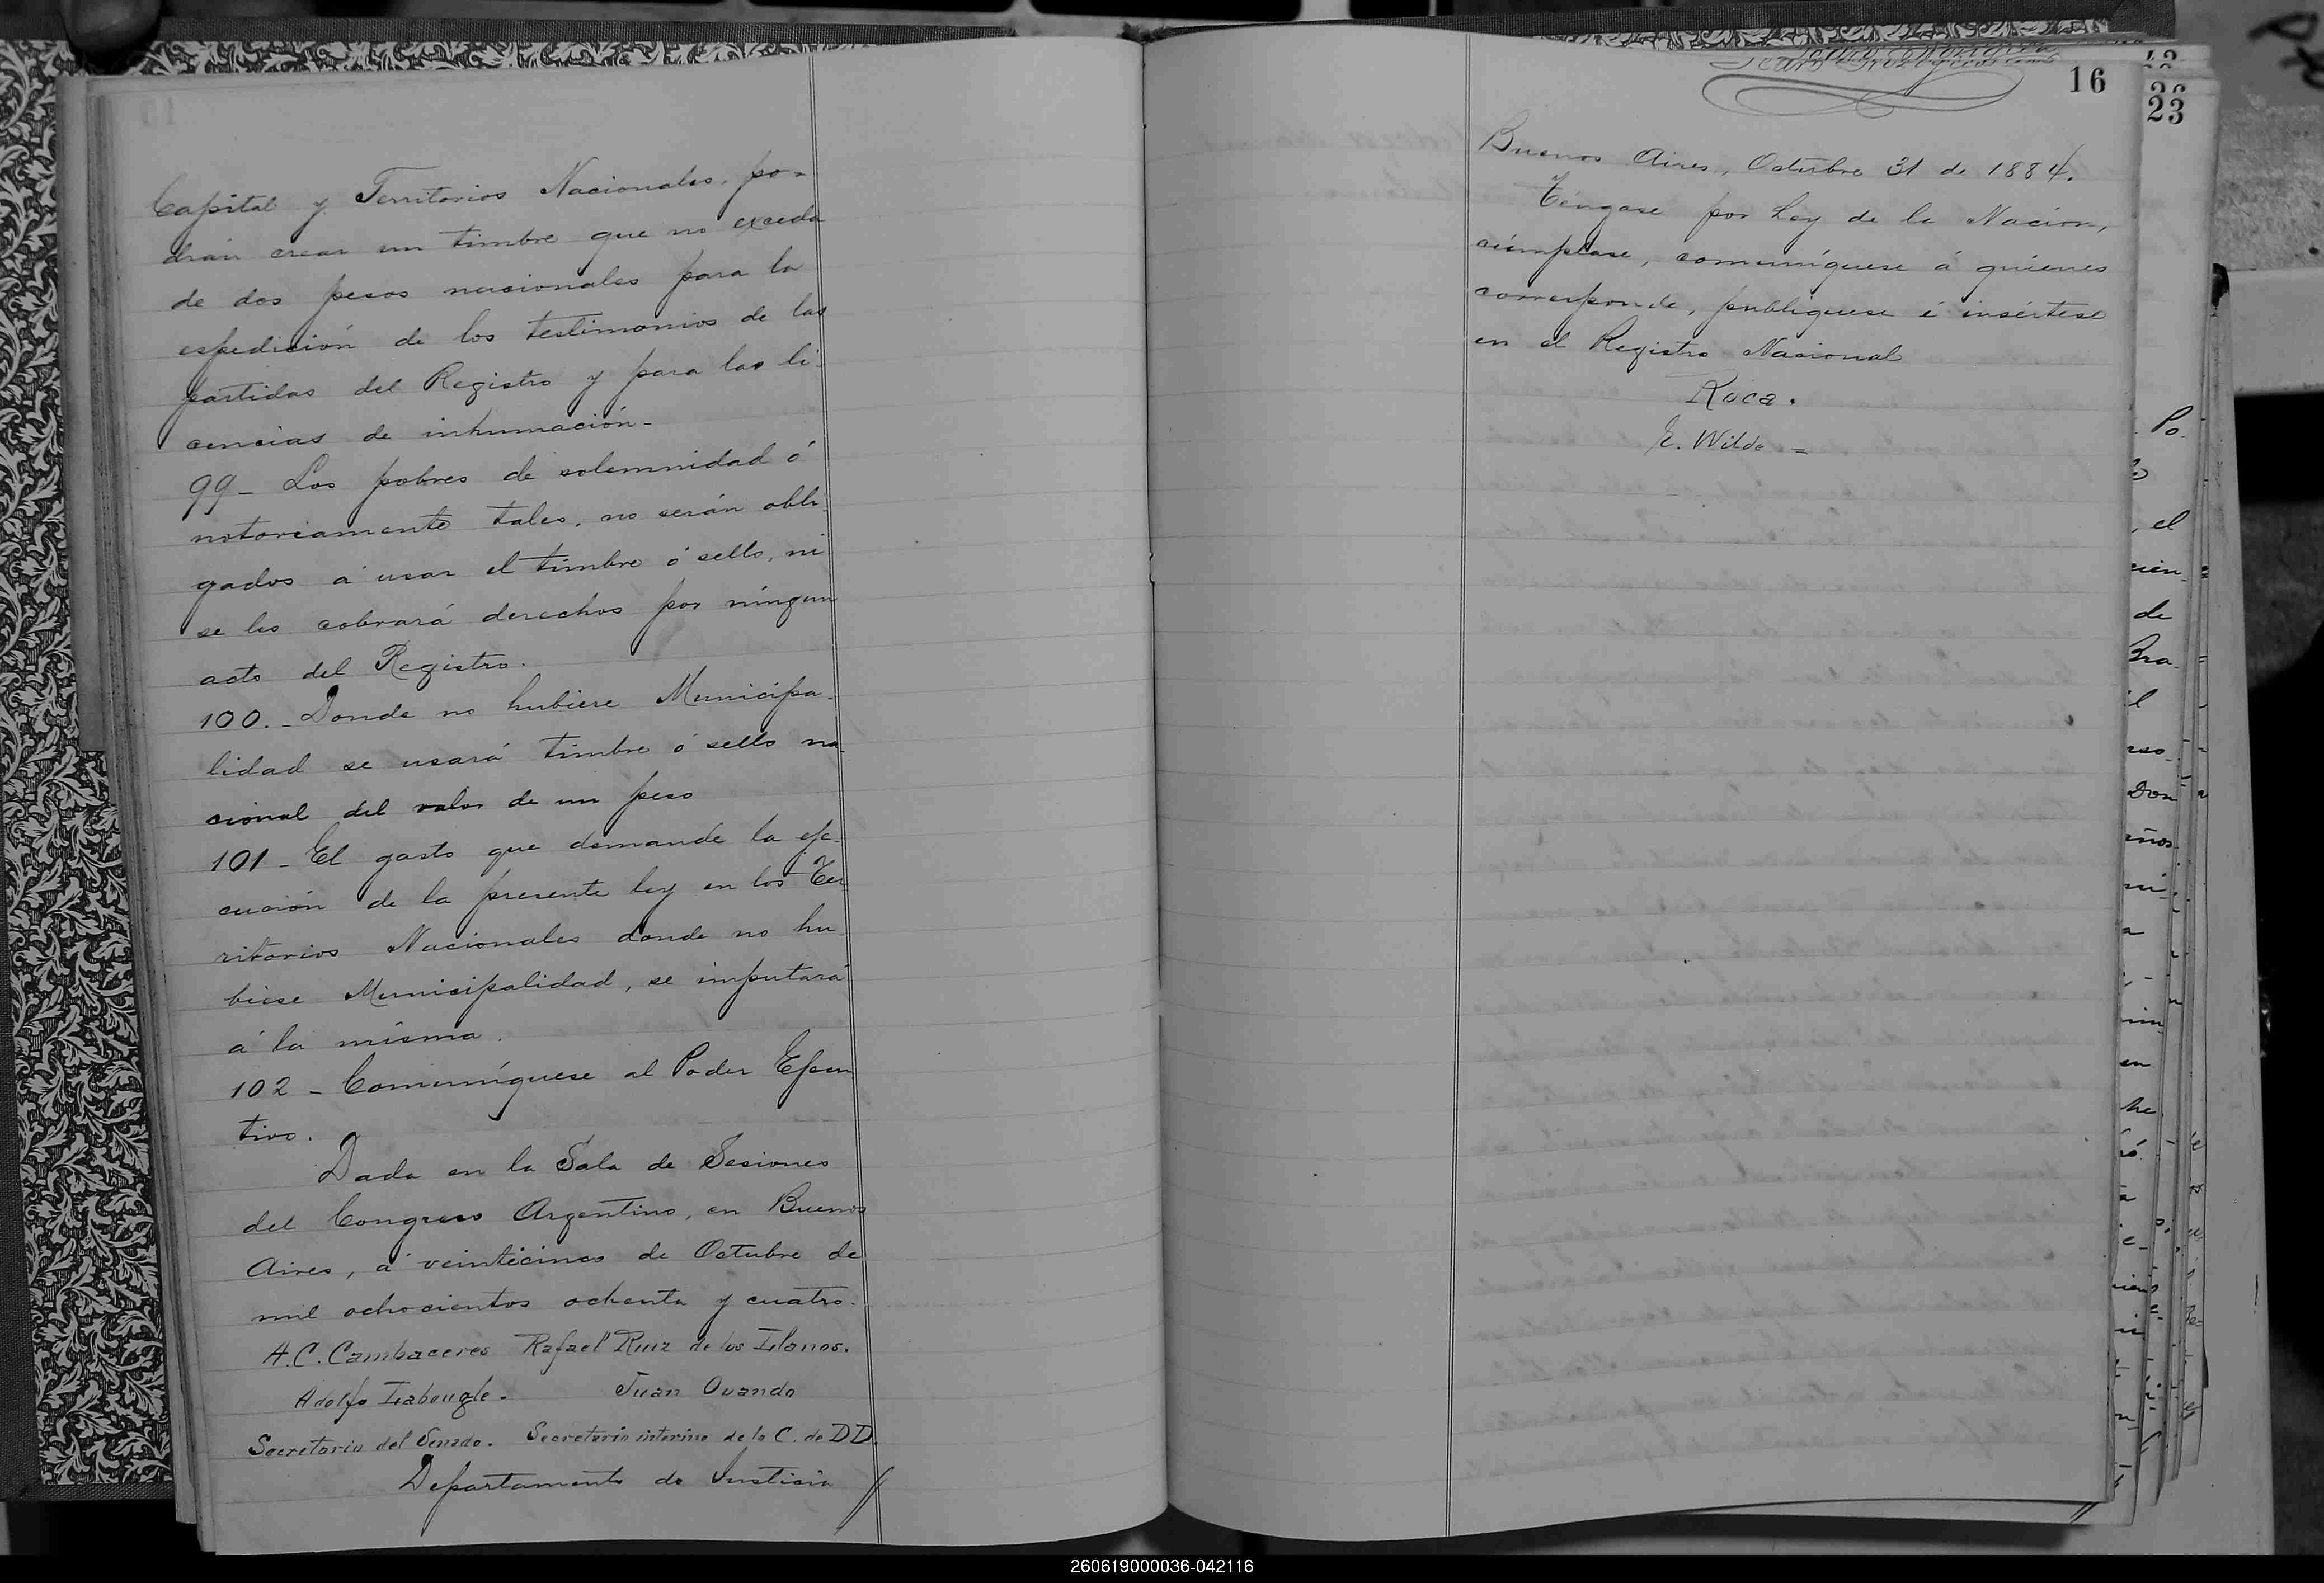 Capital y Territorios Nacionales, po-
drán crear un timbre que no exceda
de dos pesos nacionales para la
espedición de los testimonios de las
partidas del Registro y para las li-
cencias de inhumación-
99- Los pobres de solemnidad ó
notoriamente tales, no serán obli-
gados á usar el timbre ó sello, ni
se les cobrará derechos por ningun
acto del Registro.
100.- Donde no hubiere Municipa-
lidad se usará timbre ó sello na-
cional del valor de un peso
101- El gasto que demande la eje-
cución de la presente ley en los Ter-
ritorios Nacionales donde no hu-
biese Municipalidad, se imputará
á la misma.
102- Comuníquese al Poder Ejecu
tivo.
Dada en la Sala de Sesiones
del Congreso Argentino, en Buenos
Aires, á veinticinco de Octubre de
mil ochocientos ochenta y cuatro.
A. C. Cambaceres Rafael Ruiz de los Llanos.
Adolfo Labougle- Juan Ovando
Secretario del Senado. Secretario interino de la C. de DD.
Departamento de Justicia //
16
Buenos Aires, Octubre 31 de 1884.
Téngase por Ley de la Nación,
cúmplase, comuníquese á quienes
corresponde, publíquese é insértese
en el Registro Nacional
Roca.
E. Wilde =
23
260619000036-042116